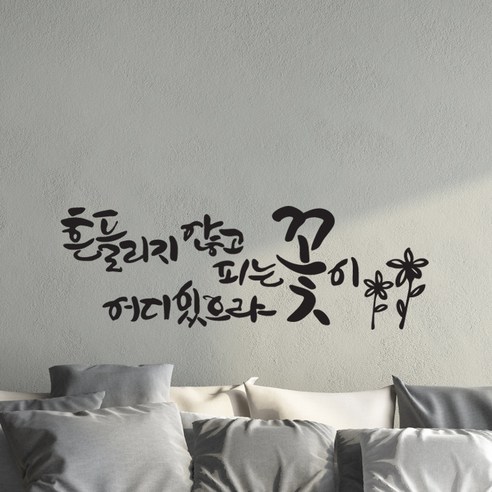 흔플리지 않고
피는 꽃이
어디있으랴